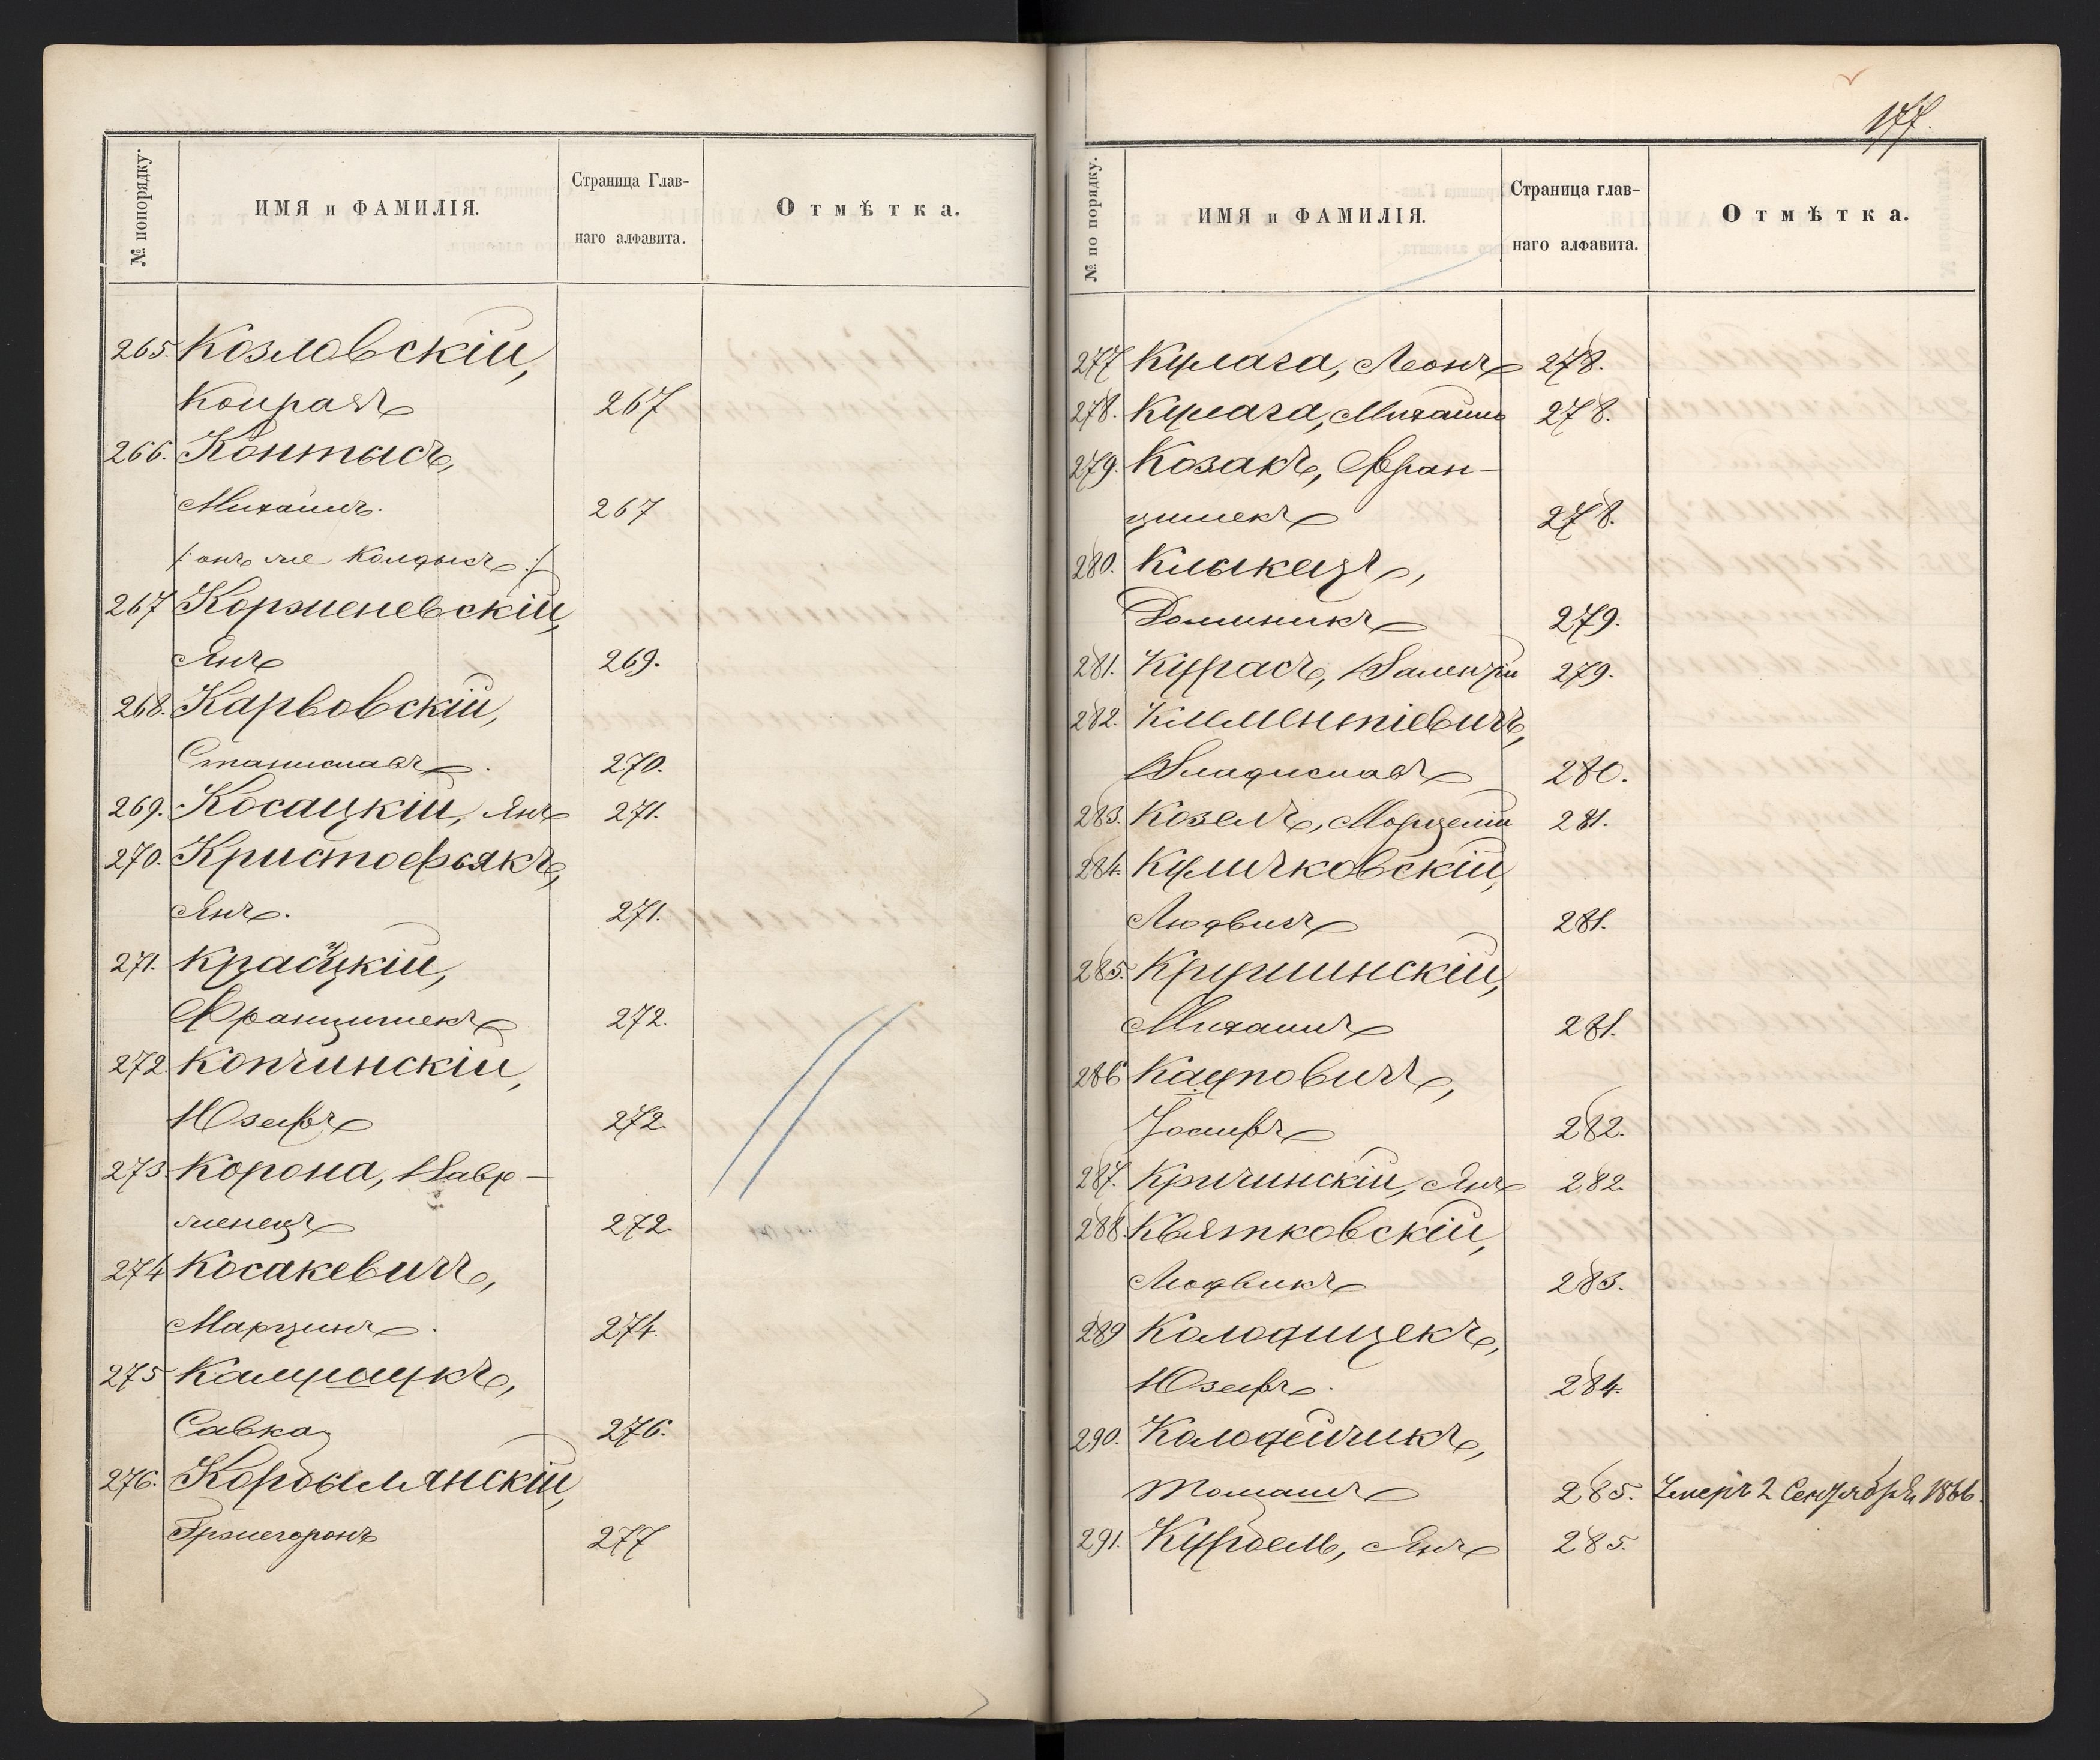 № попорядку.
ИМЯ и ФАМИЛІЯ.
Страница Глав-
наго алфавита.
Отмѣтка.
265. Козловскій,
Конрадъ 267
266. Контысъ,
Михаилъ. 267
/: онъ же Колдысъ :/
267 Корженевскій,
Янъ 269.
268. Карвовскій,
Станиславъ. 270.
269. Косацкій, Янъ 271.
270. Кристофьякъ,
Янъ. 271.
271. Красуцкій,
Францишекъ 272.
272 Копчинскій,
Юзефъ 272.
273. Корона, Вавр-
женецъ 272.
274 Косакевичъ,
Марцинъ. 274.
275
Савка 276.
276. Кордылянскій,
Гржегоржъ 277
177.
№ по порядку.
ИМЯ и ФАМИЛІЯ.
Страница глав-
наго алфавита.
Отмѣтка.
277 Кулага, Леонъ 278.
278. Кулага, Михаилъ 278.
279. Козакъ, Фран-
цишекъ 278.
280. Клыкецъ,
Доминикъ 279.
281. Курасъ, Валентій 279.
282. Климентіевичъ,
Владиславъ 280.
283. Козелъ, Марцелій 281.
284. Куличковскій,
Людвигъ 281.
285. Крушинскій,
Михаилъ 281.
286 Кауповичъ,
Іосифъ 282.
287. Кричинскій, Янъ 282.
288. Квятковскій,
Людвикъ 283.
289 Колодицекъ,
Юзефъ. 284.
290. Колодейчикъ,
Томашъ 285. Умеръ 2 Сентября 1866.
291. Курдель, Янъ 285.